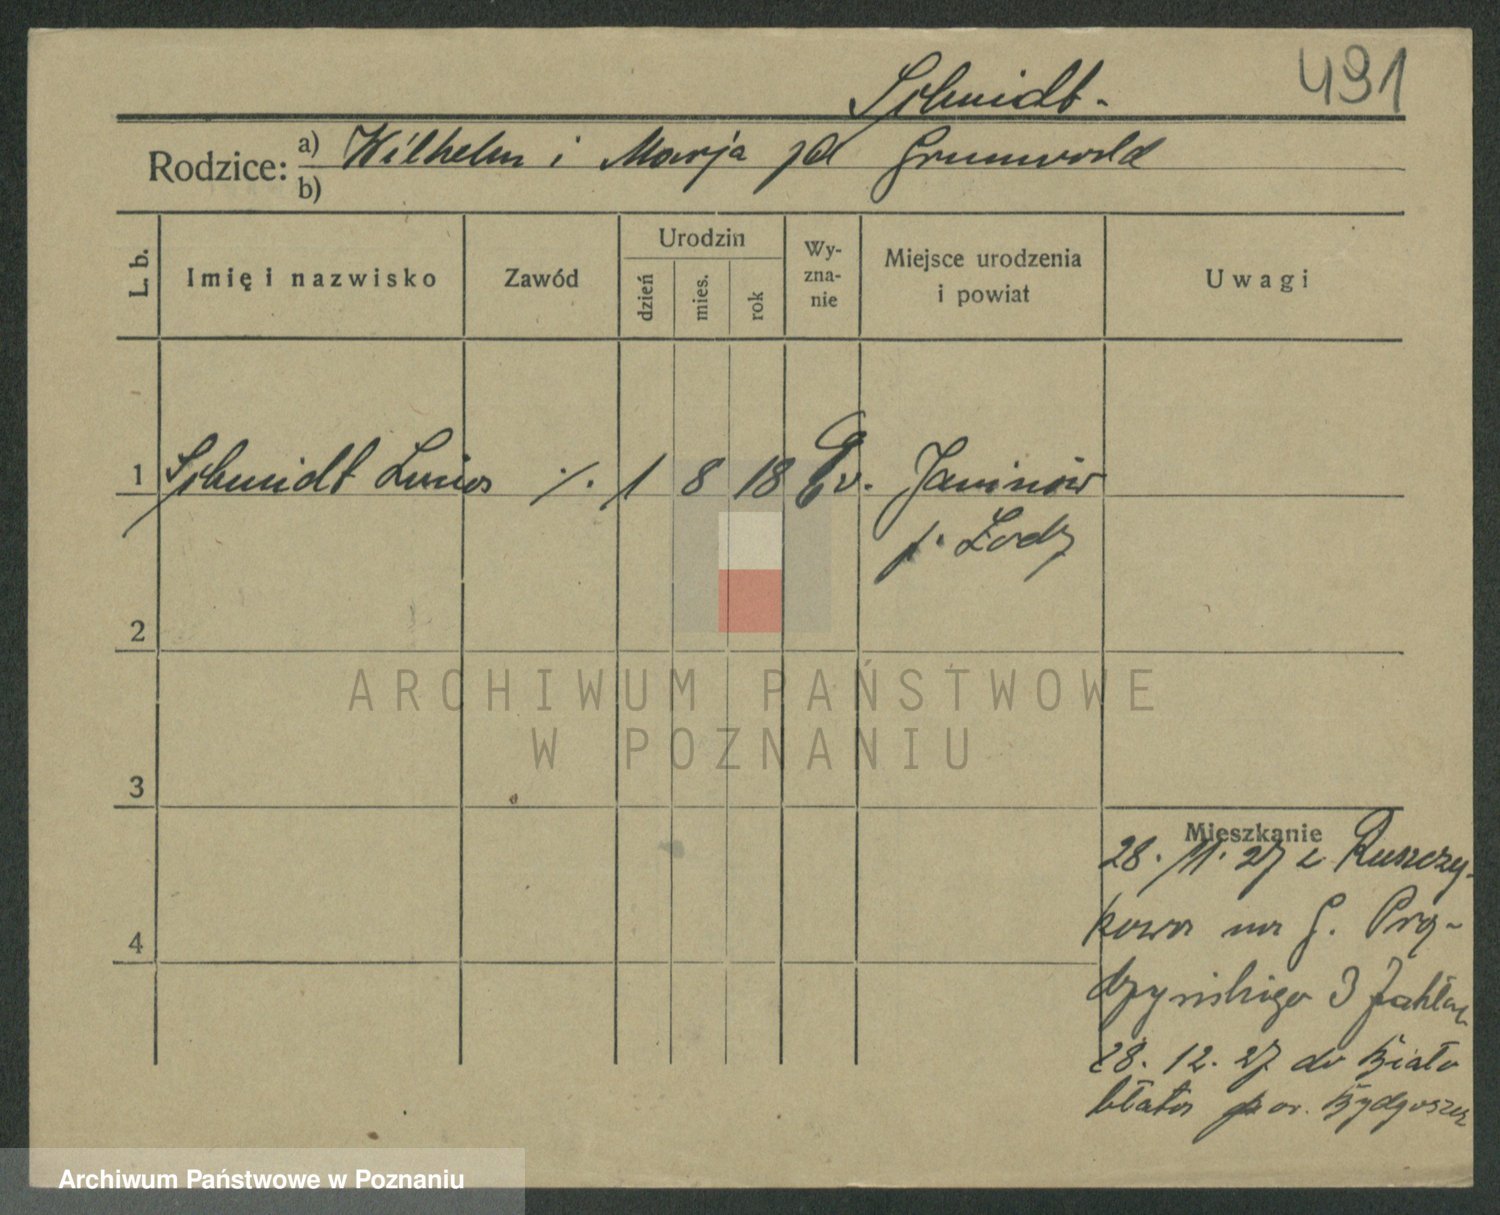 Schmidt.
491
Rodzice:
a) Wilhelm i Marja zd Grunwald
b)
L. b.
Imię i nazwisko
Zawód
Urodzin
dzień
mies.
rok
Wy-
zna-
nie
Miejsce urodzenia
i powiat
Uwagi
1 Schmidt ./. 1 8 18 Ev. Janinów
p. Łodz
2
3
4
Mieszkanie
28. 11. 27 z Ruszczy-
kowa na G. Prą-
dzyńskiego 3
28. 12. 27 do Biało
błata pow. Bydgoszcz
ARCHIWUM PAŃSTWOWE
W POZNANIU
Archiwum Państwowe w Poznaniu